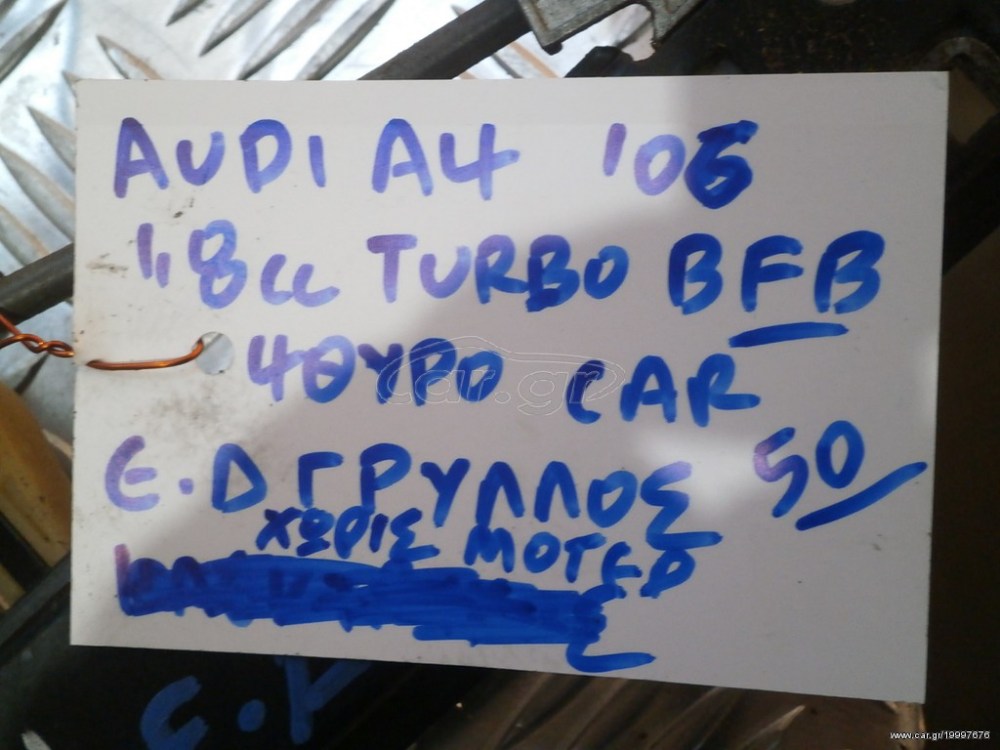 AUDI A4 '05
1,8cc TURBO BFB
4ΘΥΡΟ CAR
Ε.Δ ΓΡΥΛΛΟΣ 50
ΧΩΡΙΣ ΜΟΤΕΡ
Ε.
car.gr
www.car.gr/19997676